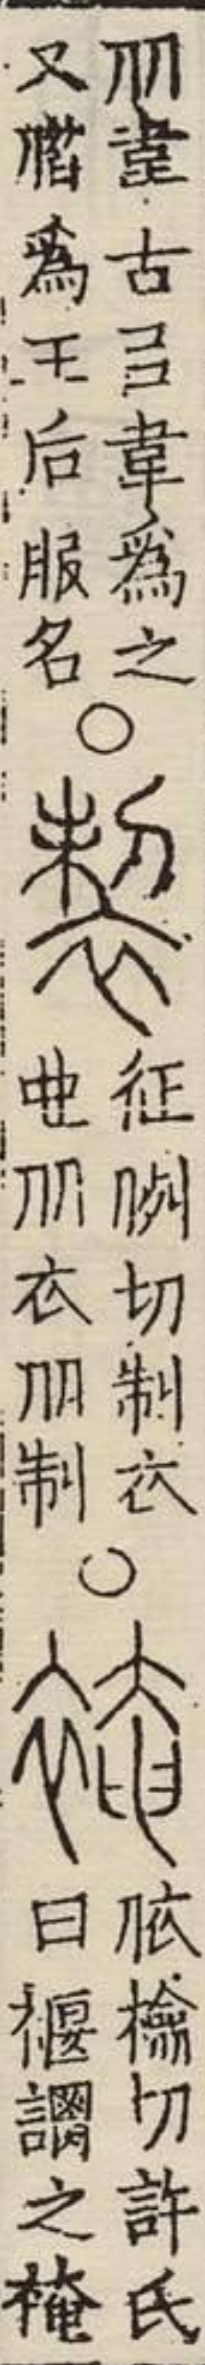 从韋古㠯韋爲之
又借爲王后服名
○
製
征例切制衣
也从衣从制
○
裺
依檢切許氏
曰褗謂之裺